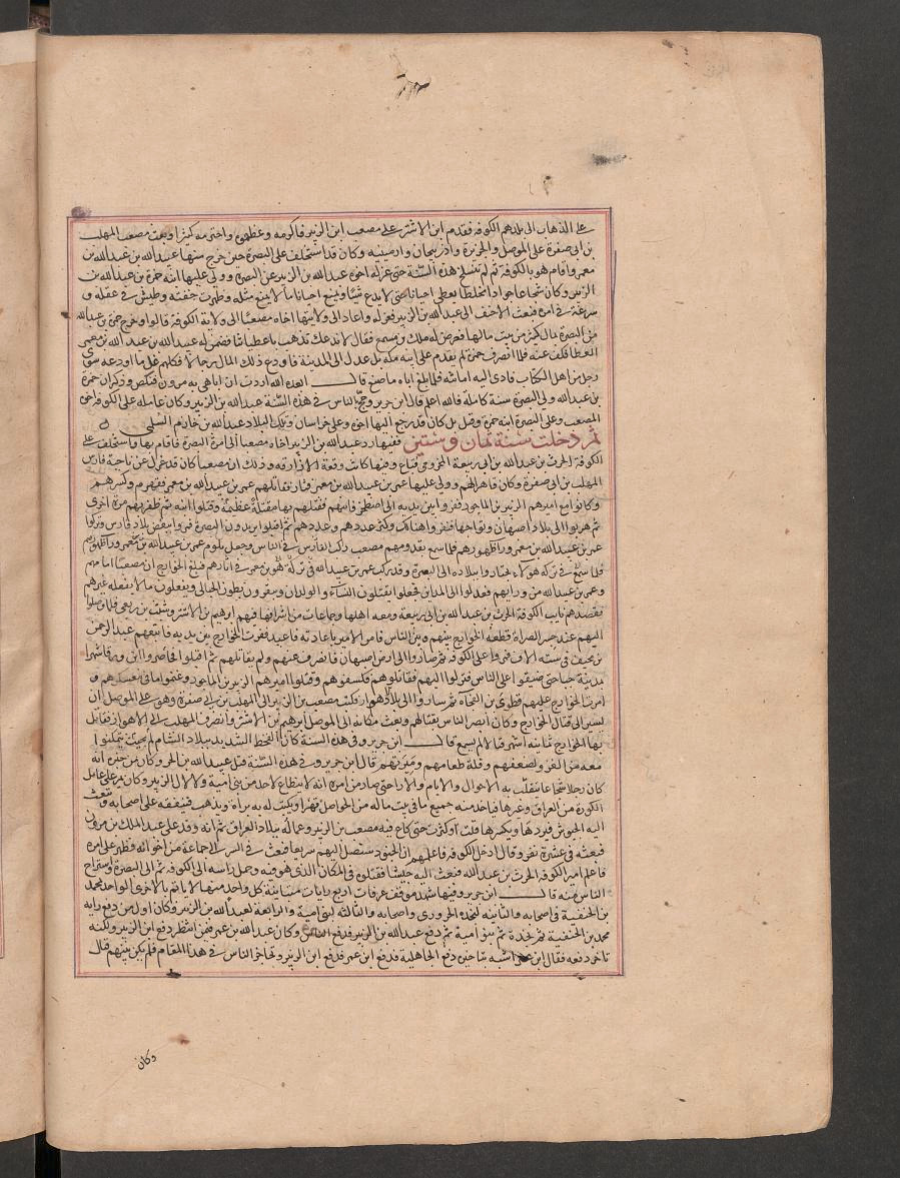 على الذهاب الى بلدهم الكوفة فقدم ابن الاشتر على مصعب ابن الزبير فاكرمه وعظمه واحترمه كثيرا وبعث مصعب المهلب
بن ابى صفرة على الموصل والجزيرة واذربيجان وارمينيه وكان قد استخلف على البصرة حين خرج منها عبيد الله بن عبد الله بن
معمر واقام هو بالكوفة ثم لم تنسلخ هذه السنة حتى عزله اخوه عبد الله بن الزبير عن البصرة وولى عليها ابنه حمزة بن عبد الله بن
الزبير وكان شجاعا جوادا مخلطا يعطى احيانا حتى لا يدع شيئا ويمنع احيانا ما لا يمنع مثله وظهرت خفته وطيش فى عقله و
سرعة فى امره فبعث الاحنف الى عبد الله بن الزبير فعزله واعاد الى ولايتها اخاه مصعبا الى ولاية الكوفة قالوا وخرج حمزة بن عبد الله
من البصرة بمال كثير من بيت مالها فعرض له مالك بن مسمع فقال لا ندعك تذهب باعطياتنا فضمن له عبيد الله بن عبد الله بن معمر
العطا فكف عنه فلما انصرف حمزة لم يقدم على ابيه مكة بل عدل الى المدينة فاودع ذلك المال رجالا فكلهم غل ما اودعه سوى
رجل من اهل الكتاب فادى اليه امانته فلما بلغ اباه ما صنع قال ابعده الله اردت ان اباهى به بنى مروان فنكص وذكر ان حمزة
بن عبد الله ولى البصرة سنة كاملة فالله اعلم قال ابن جرير وحج بالناس فى هذه السنة عبد الله بن الزبير وكان عامله على الكوفة اخوه
المصعب وعلى البصرة ابنه حمزة وقيل بل كان قد رجع اليها اخوه وعلى خراسان وتلك البلاد عبد الله بن خازم السلمى
ثم دخلت سنة ثمان وستين ففيها رد عبد الله بن الزبير اخاه مصعبا الى امرة البصرة فاقام بها واستخلف على
الكوفة الحرث بن عبد الله بن ابى ربيعة المخزومى قباع وفيها كانت وقعة الازارقه وذلك ان مصعبا كان قد عزل عن ناحية فارس
المهلب بن ابى صفرة وكان قاهرا لهم وولى عليها عمر بن عبيد الله بن معمر فثاروا فقاتلهم عمر بن عبيد الله بن معمر فقهرهم وكسرهم
وكانوا مع اميرهم الزبير بن الماحوز ففروا بين يديه الى اصطخر فاتبعهم فقتلهم بها مقتلة عظيمة وقتلوا ابنه ثم ظفر بهم مرة اخرى
ثم هربوا الى بلاد اصبهان ونواحيها فتقووا هنالك وكثر عددهم وعددهم ثم اقبلوا يريدون البصرة فمروا ببعض بلاد فارس وتركوا
عمر بن عبيد الله بن معمر وراء ظهورهم فلما سمع بقدومهم مصعب ركب فى الناس وجعل يلوم عمر بن عبيد الله بن معمر
فى تركه هولاء يجتازوا ببلاده الى البصرة وقد ركب عمر بن عبيد الله فى اثارهم فبلغ الخوارج ان مصعبا امامهم
وعمر بن عبيد الله من ورايهم فعدلوا الى المداين فجعلوا يقتلون النساء والولدان ويبقرون بطون الحبالى ويفعلون ما لا يفعله غيرهم
فقصدهم نايب الكوفة الحرث بن عبد الله بن ابى ربيعة ومعه اهلها وجماعات من اشرافها فيهم ابرهيم بن الاشتر وشبث بن ربعى فلما وصلوا
اليهم عند جسر الصراة قطعه الخوارج بينهم وبين الناس فامر الامير باعادته فاعيد ففرت الخوارج بين يديه فاتبعهم عبد الرحمن
بن مخنف فى ستة الاف فمروا على الكوفة ثم صاروا الى ارض اصبهان فانصرف عنهم ولم يقاتلهم ثم اقبلوا فحاصروا ابن ورقا شهرا
مدينة جيا حتى ضيقوا على الناس فنزلوا اليهم فقاتلوهم فكسفوهم وقتلوا اميرهم الزبير بن الماحوز وغنموا ما فى معسكرهم و
امرت الخوارج عليهم قطرى بن الفجاءة ثم ساروا الى بلاد الاهواز فكتب مصعب بن الزبير الى المهلب بن ابى صفرة وهو على الموصل ان
يسير الى قتال الخوارج وكان ابصر الناس بقتالهم وبعث مكانه الى الموصل ابرهيم بن الاشتر وانصرف المهلب الى الاهواز فقاتل
بها الخوارج ثمانية اشهر قتالا لم يسمع قال ابن جرير وفى هذه السنة كان القحط الشديد ببلاد الشام لم بحيث يتمكنوا
معه من الغزو لضعفهم وقلة طعامهم وميرتهم قال ابن جرير وفى هذه السنة قتل عبيد الله بن الحر وكان من خبره انه
كان رجلا شجاعا يتقلب به الاحوال والايام والاراء حتى صار من امره انه لا يطاع لاحد من بنى امية ولا لال الزبير وكان يمر على عامل
الكورة من العراق وغيرها فياخذ منه جميع ما فى بيت ماله من الحواصل قهرا ويكتب له به براة ويذهب فينفقه على اصحابه وتبعث
اليه الجيوش فيردها ويكسرها قلت او كثرت حتى كاع فيه مصعب بن الزبير وعماله ببلاد العراق ثم انه وفد على عبد الملك بن مروان
فبعثه فى عشرة نفر وقال ادخل الكوفة فاعلمهم ان الجنود ستصل اليهم سريعا فبعث فى السر الى جماعة من اخوانه فظهر على امره
فاعلم امير الكوفة الحرث بن عبد الله فبعث اليه جيشا فقتلوه فى المكان الذى هو فيه وحمل راسه الى الكوفة ثم الى البصرة واستراح
الناس منه قال ابن جرير وفيها شهد موقف عرفات اربع رايات متباينة كل واحدة منها لا ياتم بالاخرى الواحدة لمحمد
بن الحنفية فى اصحابه والثانية لنجدة الحرورى واصحابه والثالثة لبنى امية والرابعة لعبد الله بن الزبير وكان اول من دفع رايه
محمد بن الحنفية ثم نجدة ثم بنو امية ثم دفع عبد الله بن الزبير فدفع الناس وكان عبد الله بن عمر فيمن انتظر دفع ابن الزبير ولكنه
تاخر دفعه فقال ابن عمر اشبه بتاخيره دفع الجاهلية فدفع ابن عمر فدفع ابن الزبير وتحاجز الناس فى هذا المقام فلم يكن بينهم قتال
وكان